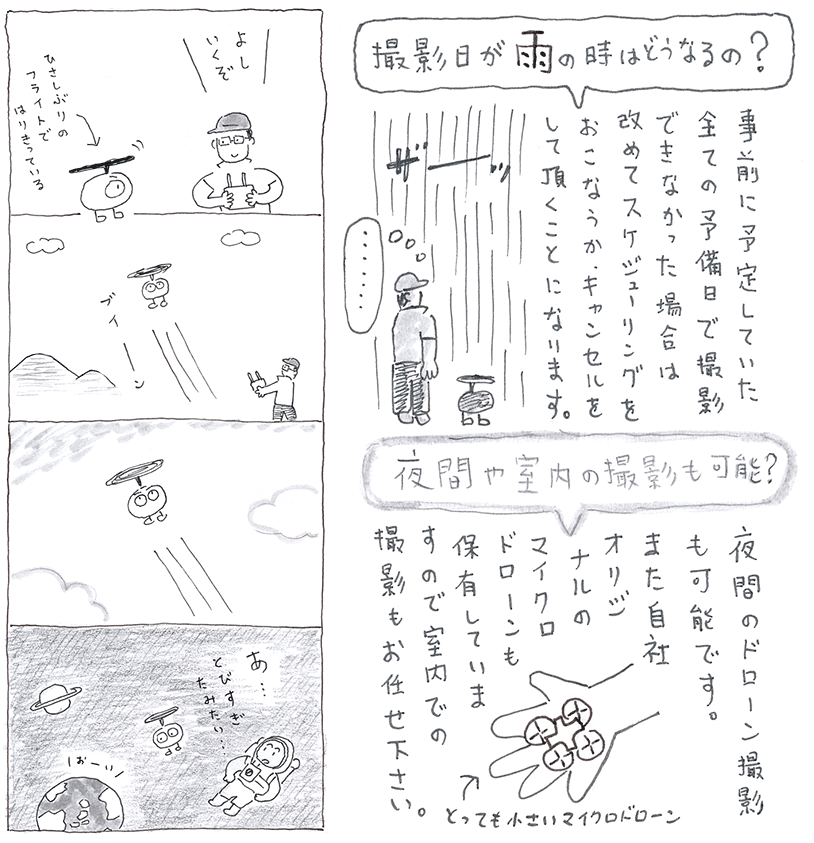 撮影日が雨の時はどうなるの？
事前に予定していた
全ての予備日で撮影
できなかった場合は
改めてスケジューリングを
おこなうか、キャンセルを
して頂くことになります。
ザーーッ
・・・・・・・
夜間や室内の撮影も可能？
夜間のドローン撮影
も可能です。
また自社
オリジ
ナルの
マイクロ
ドローンも
保有していま
すので室内での
撮影もお任せ下さい。
とっても小さいマイクロドローン
よし
いくぞ
ひさしぶりの
フライトで
はりきっている
ブイーーン
あ…
とびすぎ
たみたい…
おーい